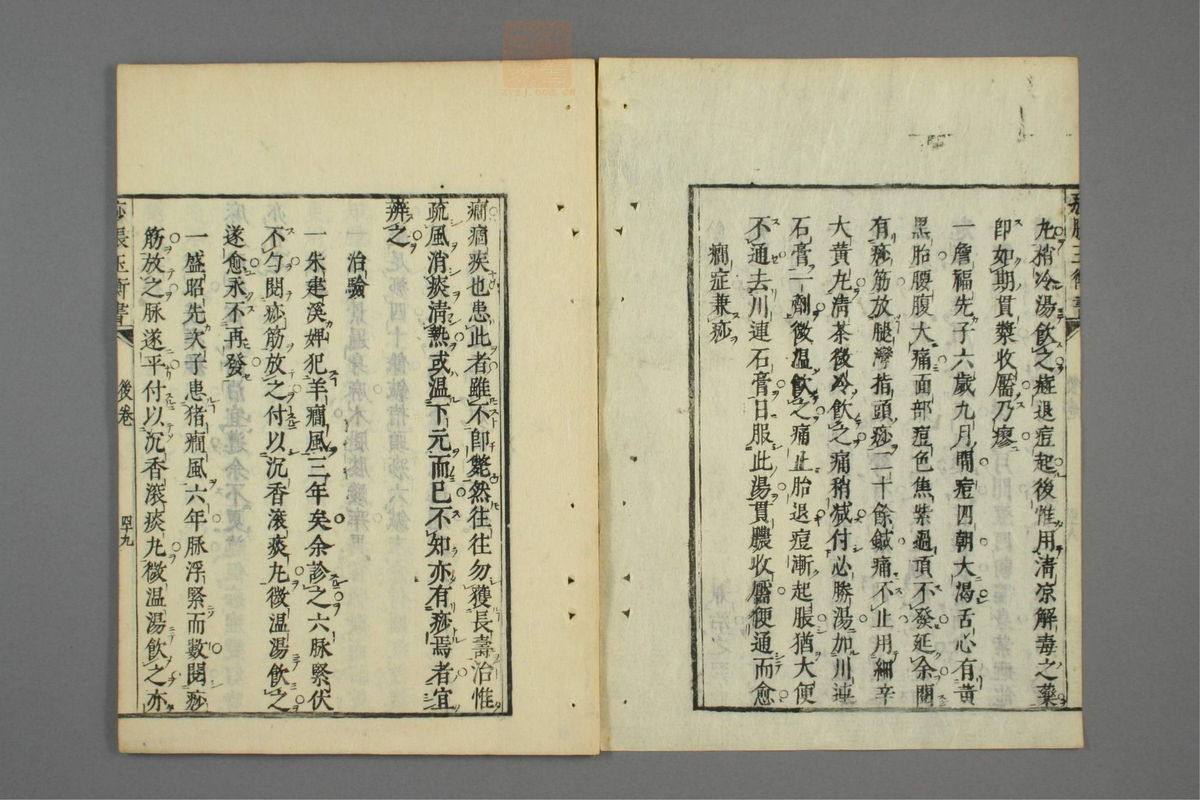 丸稍冷湯飲之痧退痘起後惟用清凉解毒之藥
卽如期貫漿收靨乃瘳
一詹福先子六歲九月間痘四朝大渴舌心有黄
黒胎腰腹大痛面部痘色焦紫過項不發延余閱
有痧筋放腿灣指頭痧二十餘鍼痛不止用細辛
大黄丸淸茶微冷飲之痛稍減付必勝湯加川連
石膏一劑微温飲之痛止胎退痘漸起脹猶大便
不通去川連石膏日服此湯貫膿收靨便通而愈
癎症兼痧
癎痼疾也患此者雖不卽斃然往往勿獲長壽治惟
疏風消痰淸熱或温下元而已不知亦有痧焉者宜
辨之
治驗
一朱建溪婢犯羊癎風三年矣余診之六脉緊伏
不勻閱痧筋放之付以沉香滚痰丸微温湯飲之
遂愈永不再發
一盛昭先次子患猪癎風六年脉浮緊而數閱痧
筋放之脉遂平付以沉香滚痰丸微温湯飲之亦
痧脹玉衡書
後卷
四十九